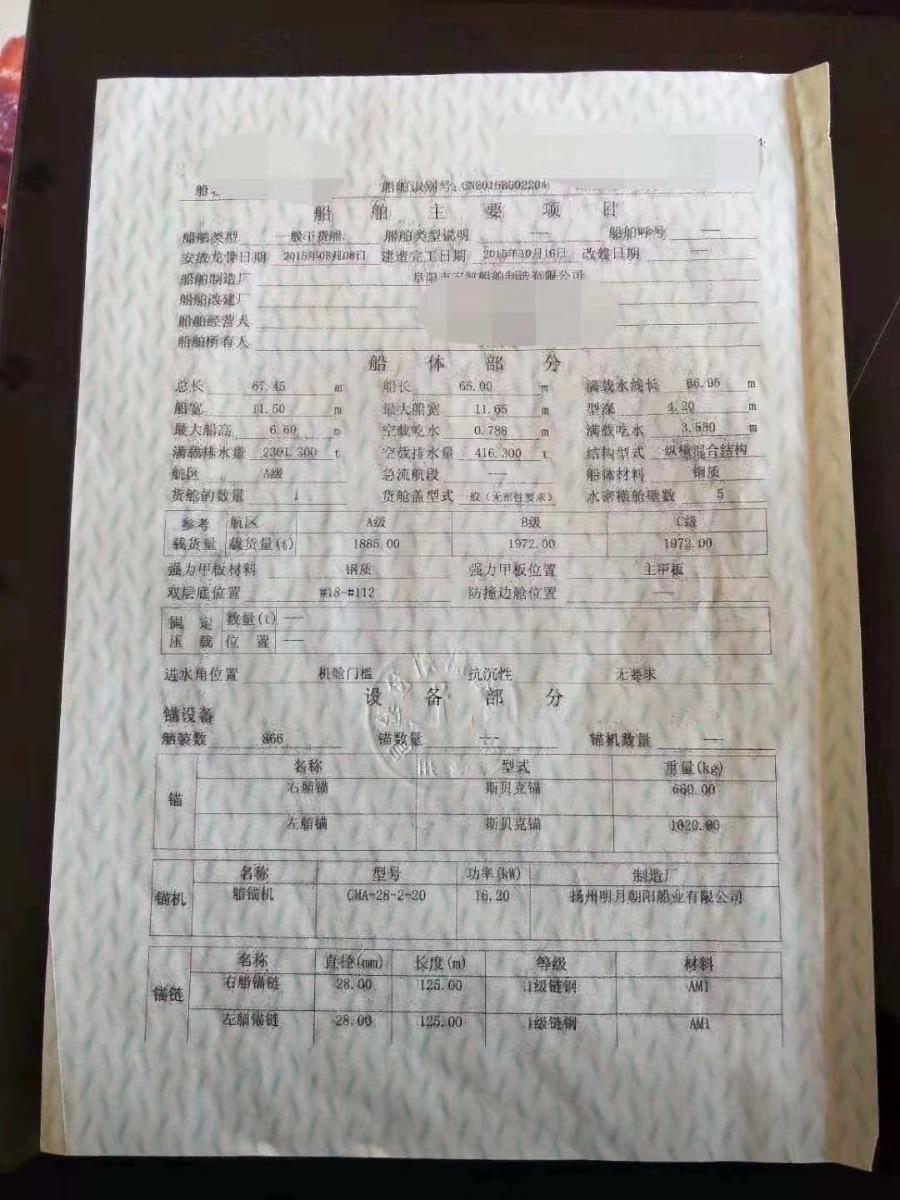 船舶识别号：CN20158502204
船舶主要项目
船舶类型 一般干货船 船舶类型说明 —— 船舶呼号 ——
安放龙骨日期 2015年05月08日 建造完工日期 2015年10月16日 改建日期 ——
船舶制造厂 阜阳市 船舶制造有限公司
船舶改建厂
船舶经营人
船舶所有人
船体部分
总长 67.45 m 船长 65.00 m 满载水线长 66.95 m
船宽 11.50 m 最大船宽 11.65 m 型深 4.20 m
最大船高 6.60 m 空载吃水 0.786 m 满载吃水 3.580 m
满载排水量 2301.300 t 空载排水量 416.300 t 结构型式 纵横混合结构
航区 A级 急流航段 —— 船体材料 钢质
货舱的数量 1 货舱盖型式 一般（无刚性要求） 水密横舱壁数 5
参考 航区 A级 B级 C级
载货量 载货量(t) 1885.00 1972.00 1972.00
强力甲板材料 钢质 强力甲板位置 主甲板
双层底位置 #18-#112 防撞边舱位置 ——
固定 数量(t) ——
压载 位置 ——
进水角位置 机舱门槛 抗沉性 无要求
设备部分
锚设备
舾装数 866 锚数量 —— 锚机数量 ——
名称 型式 重量(kg)
锚 右艏锚 斯贝克锚 660.00
左艏锚 斯贝克锚 1020.00
名称 型号 功率(kW) 制造厂
锚机 艏锚机 CMA-28-2-20 16.20 扬州明月朝阳船业有限公司
名称 直径(mm) 长度(m) 等级 材料
锚链 右艏锚链 28.00 125.00 1级链钢 AM1
左艏锚链 28.00 125.00 1级链钢 AM1